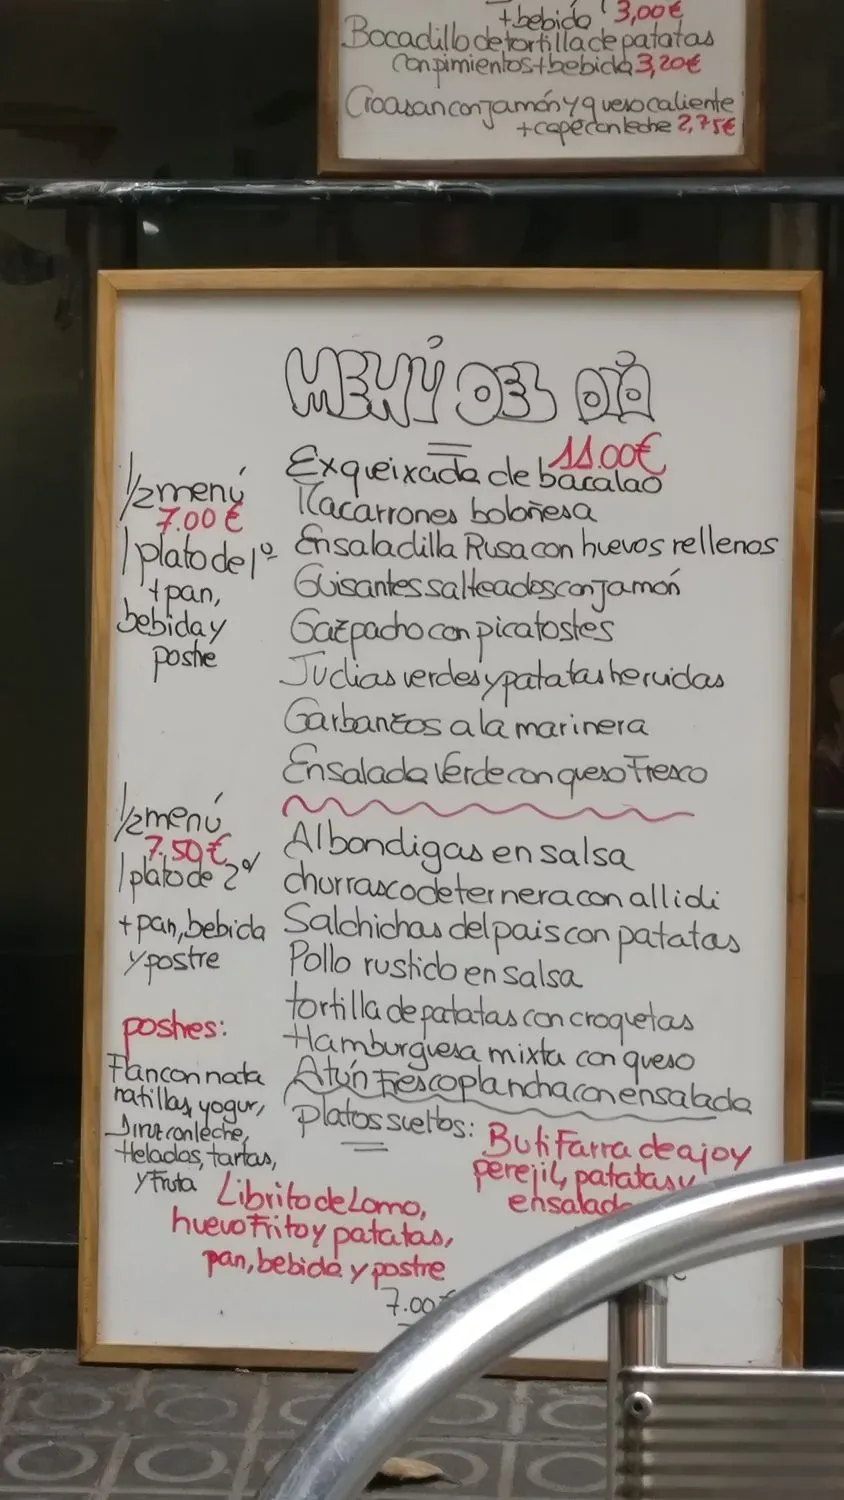 +bebida 3,00€
Bocadillo de tortilla de patatas
con pimientos + bebida 3,20€
Croasan con jamón y queso caliente
+ cape con leche 2,75€
MENÚ DEL DÍA
11.00€
Exqueixada de bacalao
Macarrones boloñesa
Ensaladilla Rusa con huevos rellenos
Guisantes salteados con jamón
Gazpacho con picatostes
Judias verdes y patatas hervidas
Garbanzos a la marinera
Ensalada Verde con queso Fresco
1/2 menú
7.00 €
1 plato de 1º
+ pan,
bebida y
postre
Albondigas en salsa
churrasco de ternera con allioli
Salchichas del pais con patatas
Pollo rustido en salsa
tortilla de patatas con croquetas
Hamburguesa mixta con queso
Atún Fresco plancha con ensalada
1/2 menú
7.50 €
1 plato de 2º
+ pan, bebida
y postre
postres:
Flan con nata
natillas, yogur,
con leche,
Helados, tartas,
y Fruta
Platos sueltos:
Butifarra de ajo y
perejil, patatas y
Librito de Lomo,
huevo Frito y patatas,
pan, bebida y postre
7.00